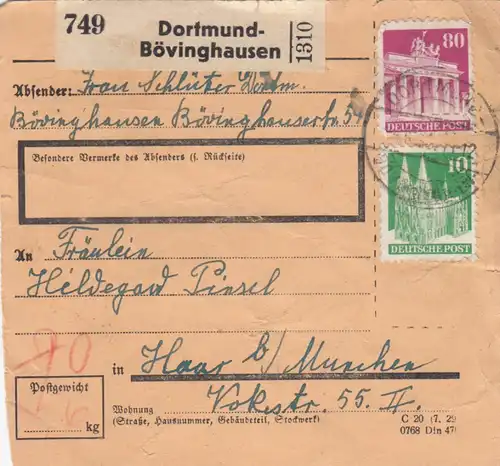 749 Dortmund-
Bövinghausen 1310
80
DEUTSCHE POST
Absender: Frau Schlüter Dortm.
Bövinghausen Bövinghauserstr. 54
Besondere Vermerke des Absenders (s. Rückseite)
10
DEUTSCHE POST
An Fräulein
Hildegard Pinsel
in Haar b/ München
Postgewicht
kg
Wohnung Vokestr. 55. II.
(Straße, Hausnummer, Gebäudeteil, Stockwerk)
C 20 (7. 29
0768 Din 476